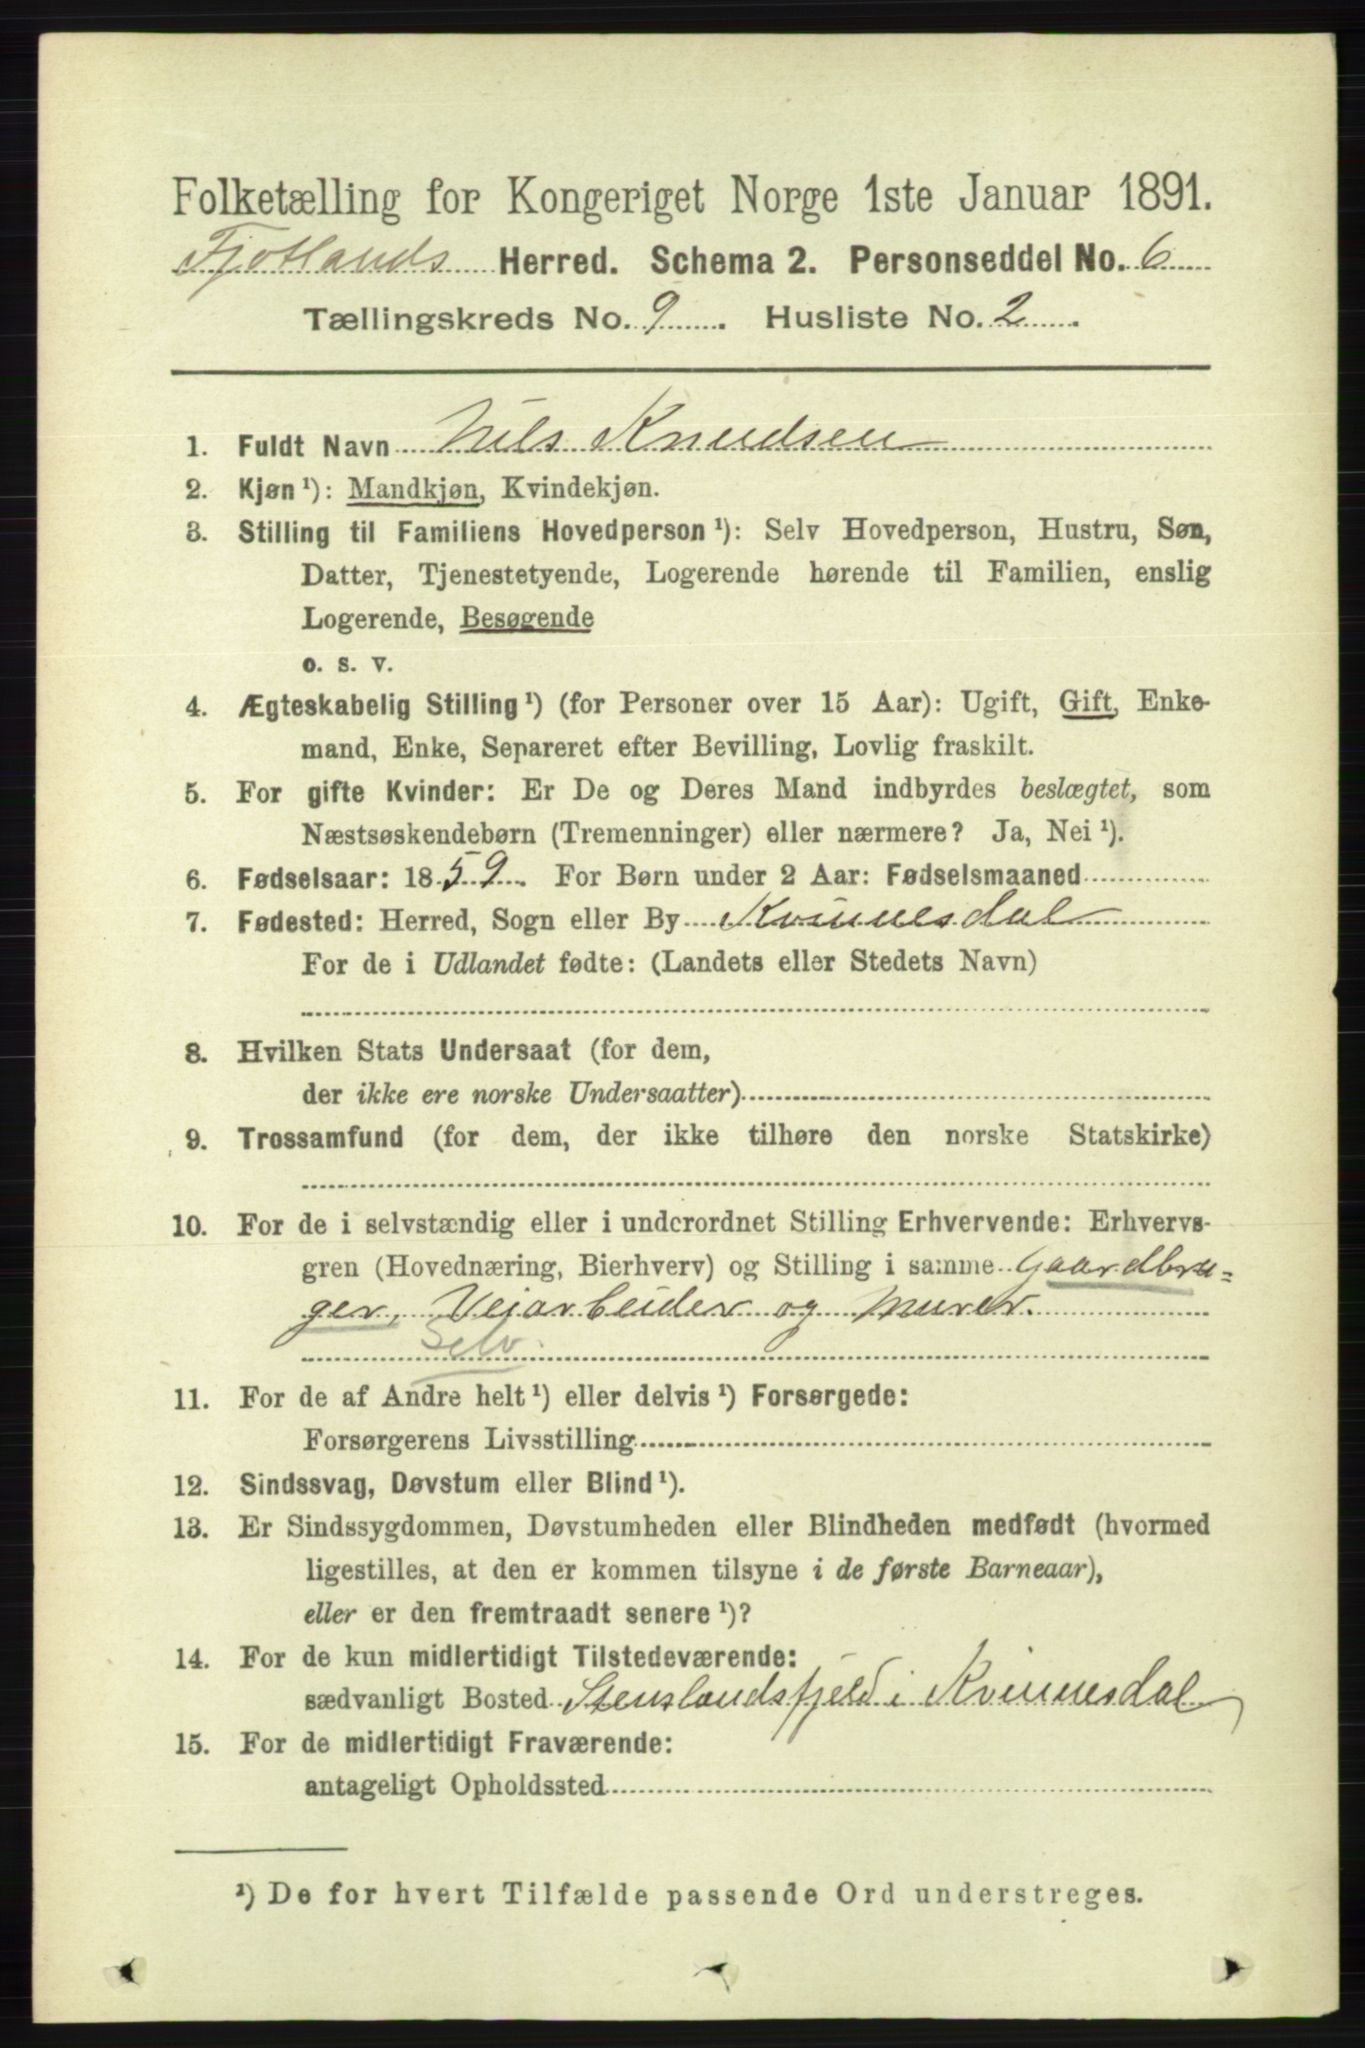 Folketælling for Kongeriget Norge 1ste Januar 1891.
Fjotlands Herred. Schema 2. Personseddel No. 6
Tællingskreds No. 9. Husliste No. 2.
1. Fuldt Navn Nils Knudsen
2. Kjøn ¹): Mandkjøn, Kvindekjøn.
3. Stilling til Familiens Hovedperson ¹): Selv Hovedperson, Hustru, Søn,
Datter, Tjenestetyende, Logerende hørende til Familien, enslig
Logerende, Besøgende
o. s. v.
4. Ægteskabelig Stilling ¹) (for Personer over 15 Aar): Ugift, Gift, Enke-
mand, Enke, Separeret efter Bevilling, Lovlig fraskilt.
5. For gifte Kvinder: Er De og Deres Mand indbyrdes beslægtet, som
Næstsøskendebørn (Tremenninger) eller nærmere? Ja, Nei ¹).
6. Fødselsaar: 1859. For Børn under 2 Aar: Fødselsmaaned
7. Fødested: Herred, Sogn eller By Kvinnesdal
For de i Udlandet fødte: (Landets eller Stedets Navn)
8. Hvilken Stats Undersaat (for dem,
der ikke ere norske Undersaatter)
9. Trossamfund (for dem, der ikke tilhøre den norske Statskirke)
10. For de i selvstændig eller i underordnet Stilling Erhvervende: Erhvervs-
gren (Hovednæring, Bierhverv) og Stilling i samme Gaardbru-
ger, Veiarbeider og Murer.
Selv
11. For de af Andre helt ¹) eller delvis ¹) Forsørgede:
Forsørgerens Livsstilling
12. Sindssvag, Døvstum eller Blind ¹).
13. Er Sindssygdommen, Døvstumheden eller Blindheden medfødt (hvormed
ligestilles, at den er kommen tilsyne i de første Barneaar),
eller er den fremtraadt senere ¹)?
14. For de kun midlertidigt Tilstedeværende:
sædvanligt Bosted Stenslandsfjeld i Kvinnesdal
15. For de midlertidigt Fraværende:
antageligt Opholdssted
¹) De for hvert Tilfælde passende Ord understreges.